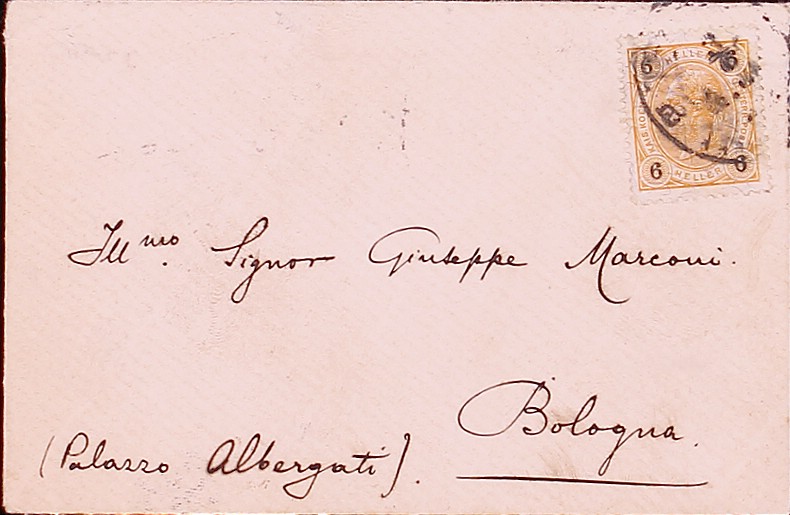 6 HELLER 6
6 HELLER 6
Ill.mo Signor Giuseppe Marconi.
Bologna.
(Palazzo Albergati).